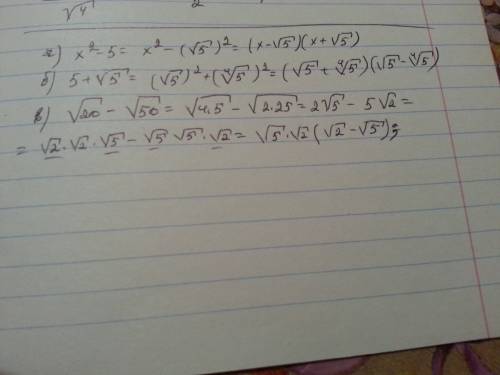 √4 2
а) x² - 5 = x² - (√5)² = (x - √5)(x + √5)
б) 5 + √5 = (√5)² + (∜5)² = (√5 + ∜5)(√5 - ∜5)
в) √20 - √50 = √4·5 - √2·25 = 2√5 - 5√2 =
= √2·√2·√5 - √5·√5·√2 = √5·√2(√2 - √5);